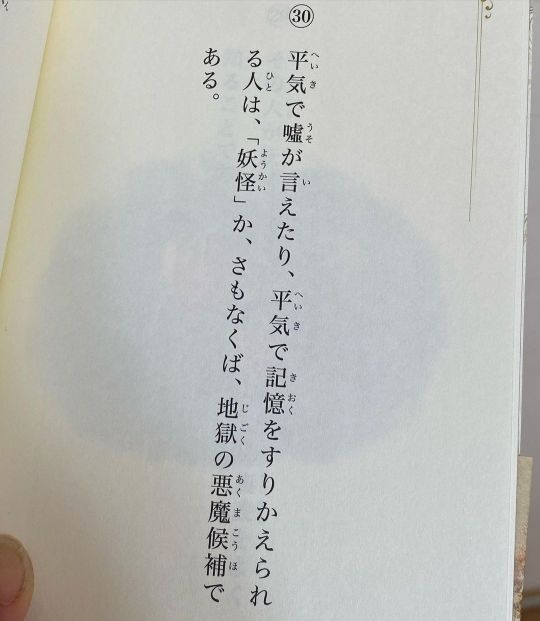 ㉚
平気で嘘が言えたり、平気で記憶をすりかえられ
る人は、「妖怪」か、さもなくば、地獄の悪魔候補で
ある。